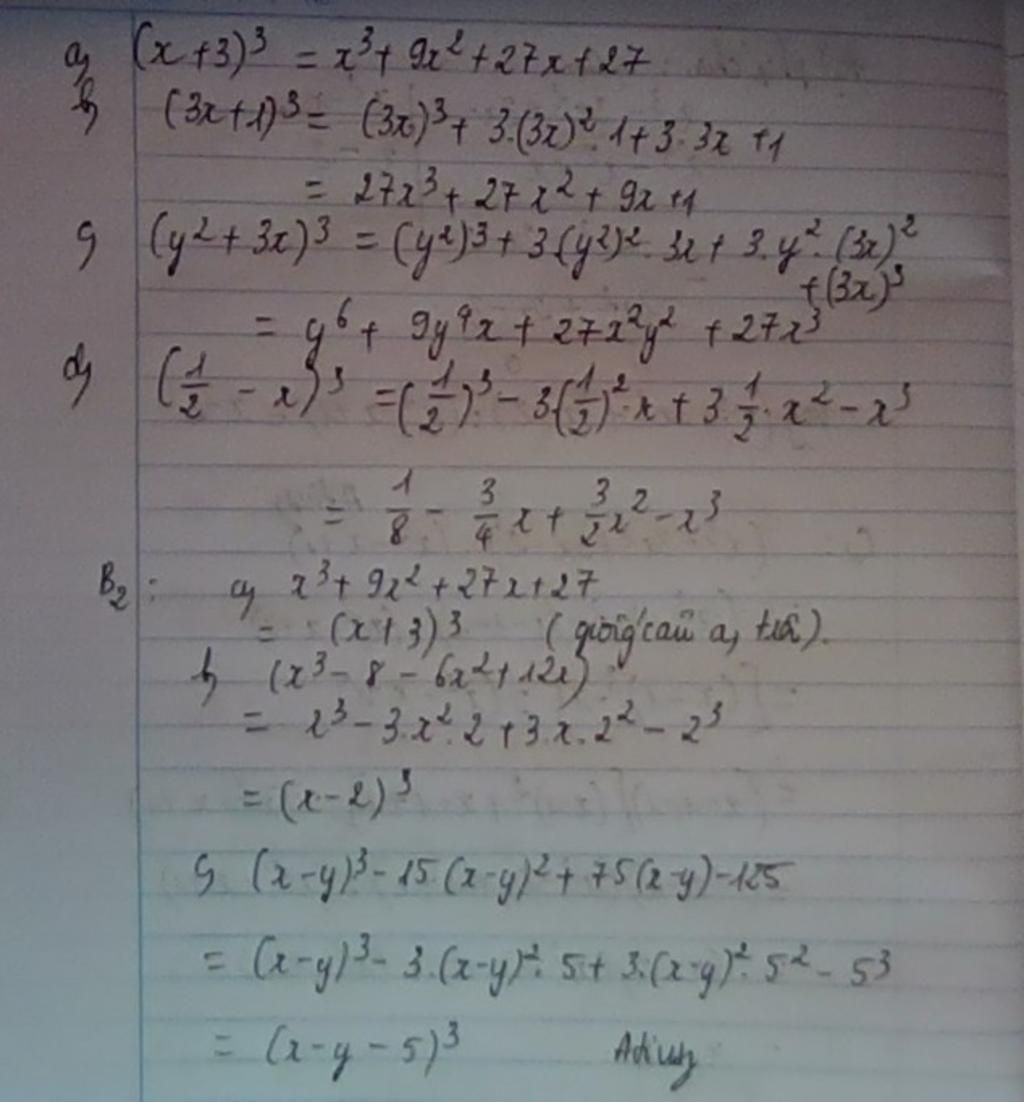 a, (x+3)³ = x³ + 9x² + 27x + 27
b, (3x+1)³ = (3x)³ + 3.(3x)².1 + 3.3x + 1
= 27x³ + 27x² + 9x + 1
c, (y² + 3x)³ = (y²)³ + 3.(y²)².3x + 3.y².(3x)²
+ (3x)³
= y⁶ + 9y⁴x + 27x²y² + 27x³
d, (1/2 - x)³ = (1/2)³ - 3.(1/2)².x + 3.1/2.x² - x³
= 1/8 - 3/4x + 3/2x² - x³
B₂ : a, x³ + 9x² + 27x + 27
= (x+3)³ (giống câu a, trên).
b, (x³ - 8 - 6x² + 12x)
= x³ - 3.x².2 + 3.x.2² - 2³
= (x-2)³
c, (x-y)³ - 15(x-y)² + 75(x-y) - 125
= (x-y)³ - 3.(x-y)².5 + 3.(x-y)².5² - 5³
= (x-y-5)³